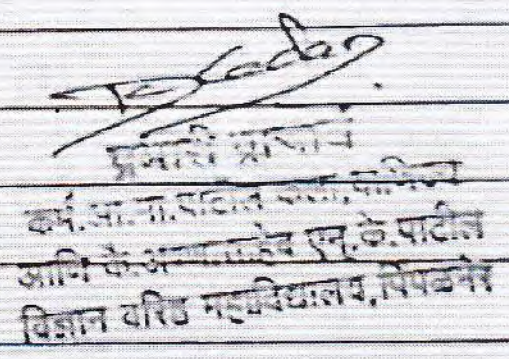 प्रभारी प्राचार्य
कर्म.आ.मा.पाटील कला, वाणिज्य
आणि कै.अण्णासाहेब एन्.के.पाटील
विज्ञान वरिष्ठ महाविद्यालय, पिंपळनेर